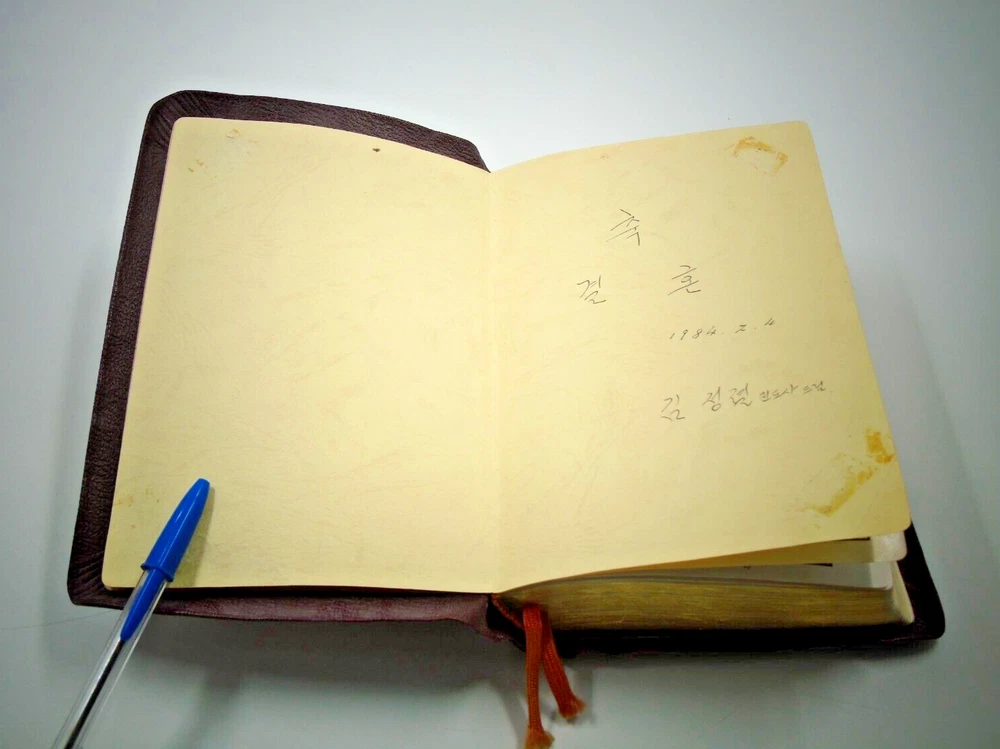 축
결 혼
1984. 2. 4
김 정렬 전도사 드림